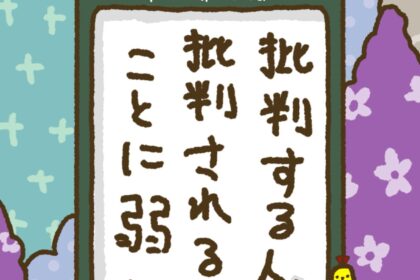 批判する人
批判される
ことに弱